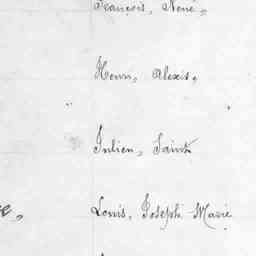 François, René,
Henri, Alexis,
Julien, Saint
Louis, Joseph Marie